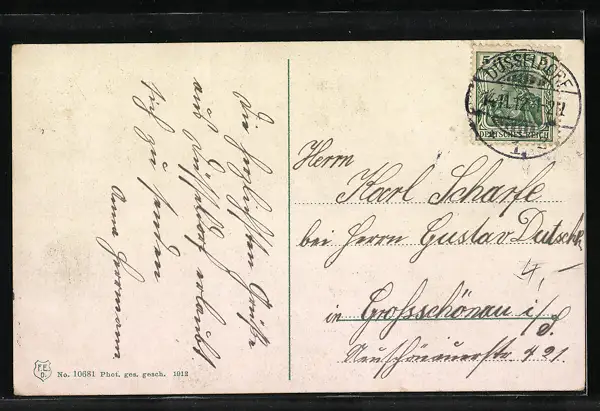 Die herzlichsten Grüße
aus Düsseldorf erlaubt
sich zu senden
Anna Herrmann
5
DÜSSELDORF
DEUTSCHES REICH
1.
Herrn
Karl Scharfe
bei Herrn Gustav Dutschke
4,–
in Grossschönau i/S.
Neuschönauerstr. 421.
F.E.D.
No. 10681 Phot. ges. gesch. 1912